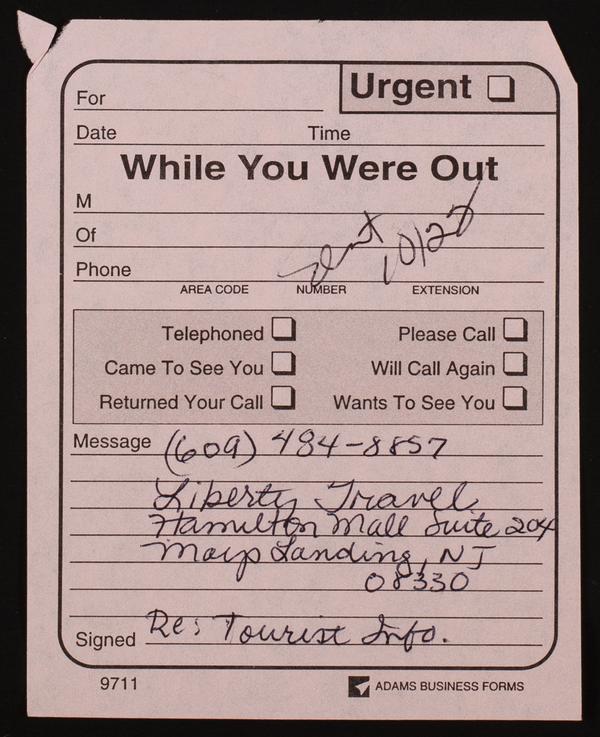 For
Urgent
Date Time
While You Were Out
M
Of
Phone Sent 10/22
AREA CODE NUMBER EXTENSION
Telephoned Please Call
Came To See You Will Call Again
Returned Your Call Wants To See You
Message (609) 484-8857
Liberty Travel
Hamilton Mall Suite 204
Mays Landing, NJ
08330
Signed Re: Tourist Info.
9711 ADAMS BUSINESS FORMS